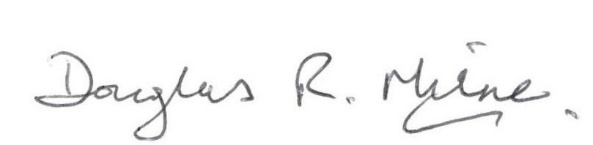 Douglas R. Milne.